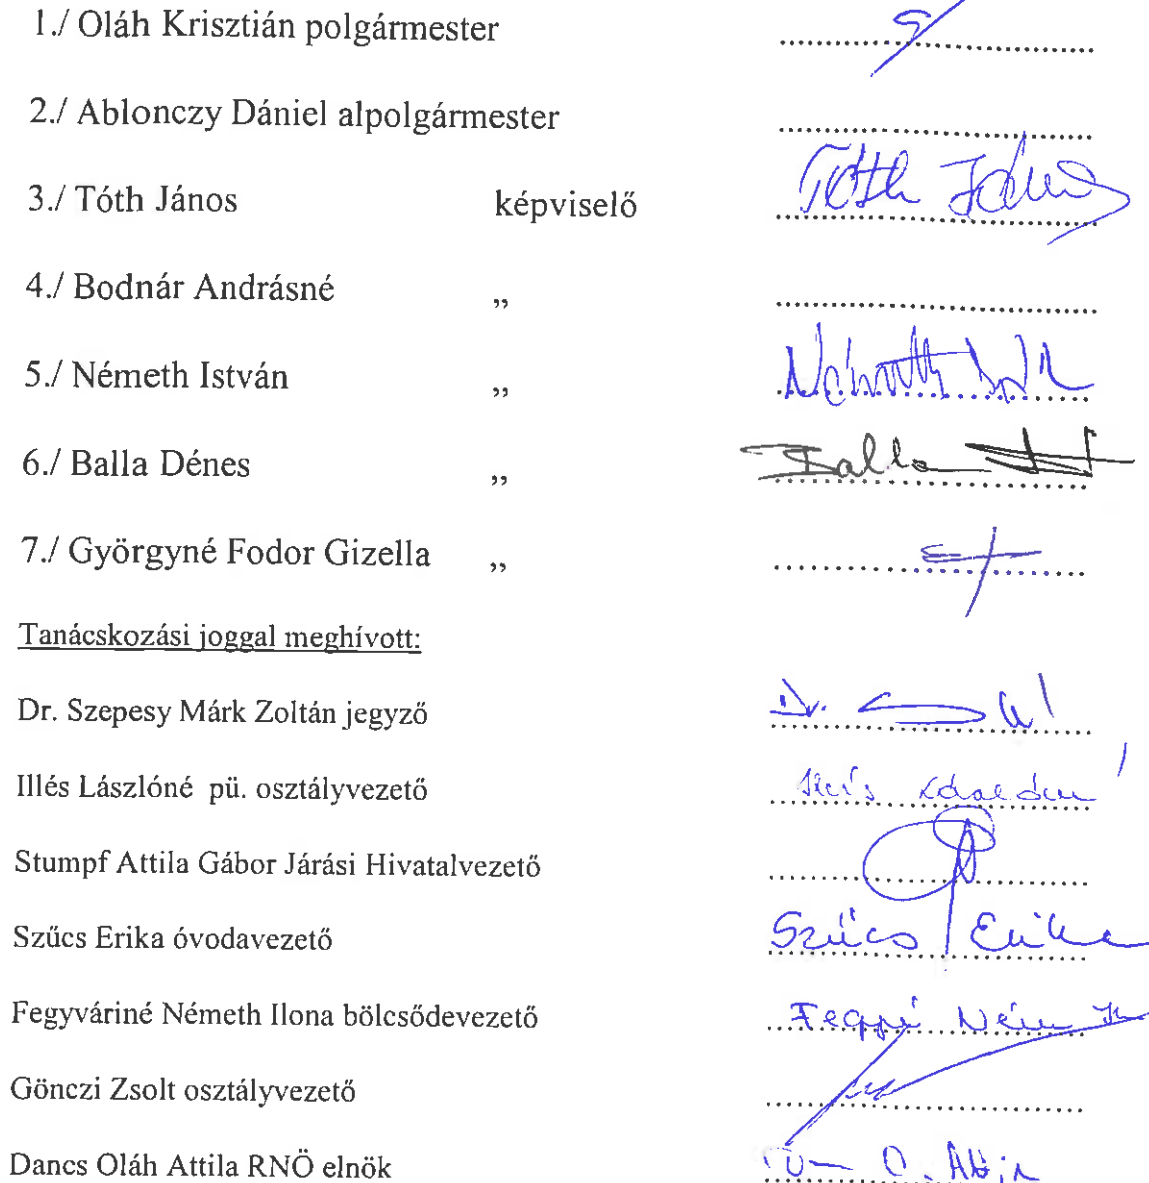 1./ Oláh Krisztián polgármester
2./ Ablonczy Dániel alpolgármester
3./ Tóth János képviselő Tóth János
4./ Bodnár Andrásné „
5./ Németh István „
6./ Balla Dénes „ Balla
7./ Györgyné Fodor Gizella „
Tanácskozási joggal meghívott:
Dr. Szepesy Márk Zoltán jegyző Dr.
Illés Lászlóné pü. osztályvezető
Stumpf Attila Gábor Járási Hivatalvezető
Szűcs Erika óvodavezető Szűcs Erika
Fegyváriné Németh Ilona bölcsődevezető
Gönczi Zsolt osztályvezető
Dancs Oláh Attila RNÖ elnök